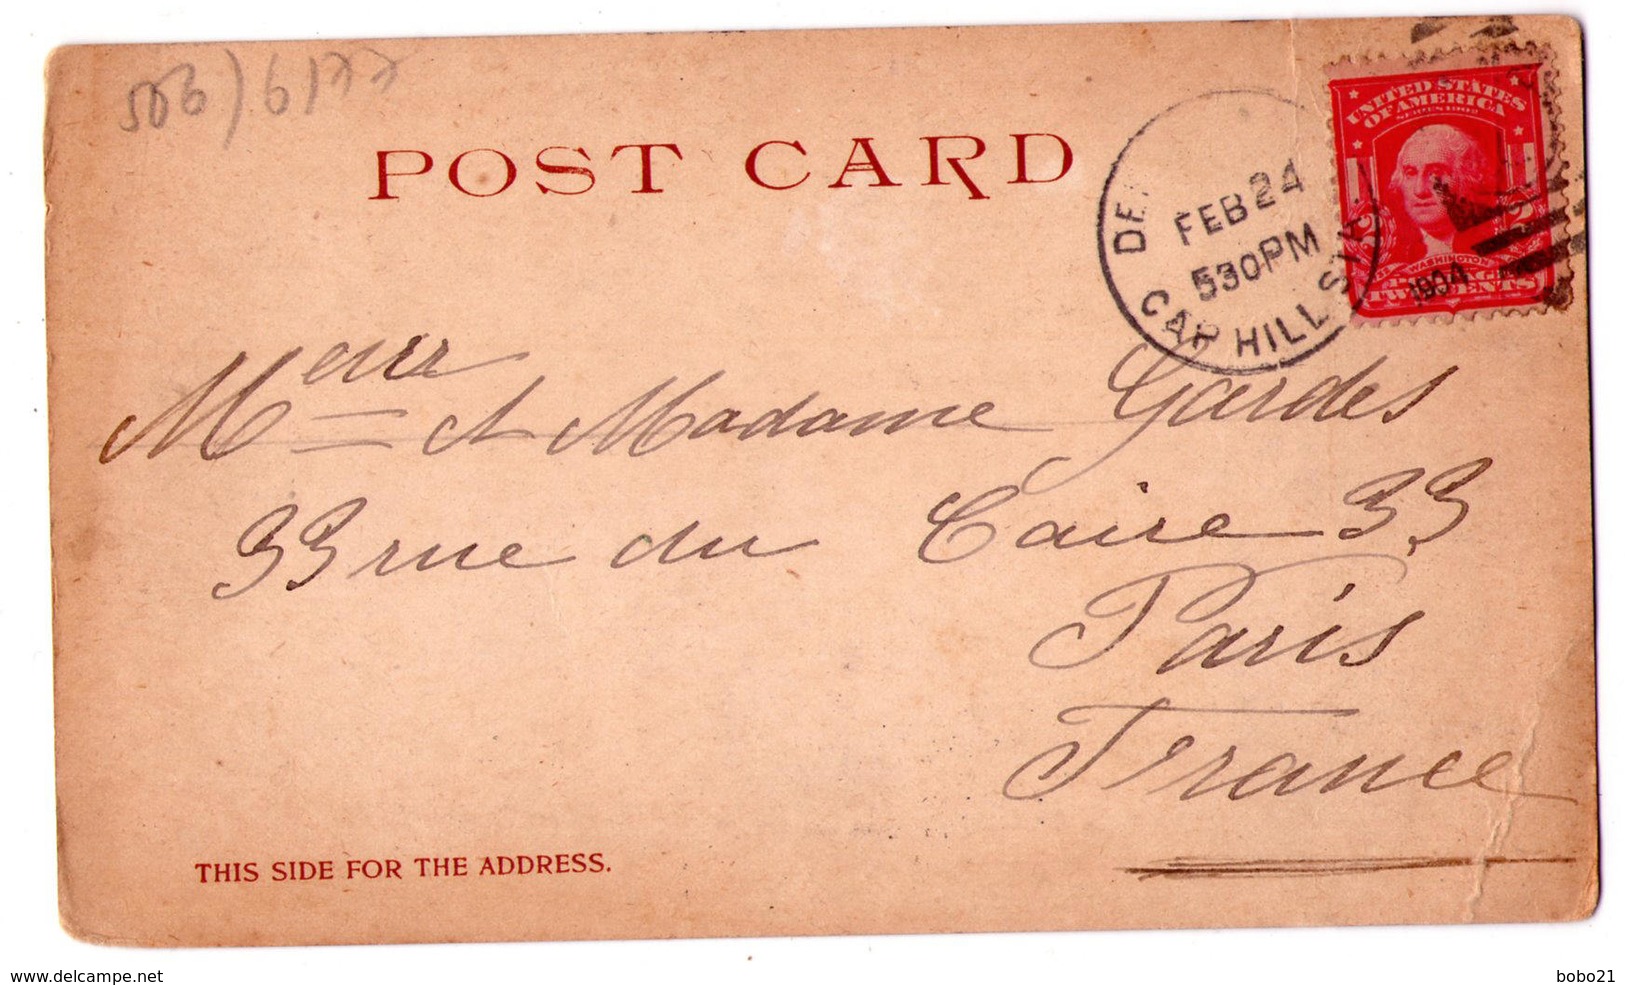 506) 6177
POST CARD
UNITED STATES
OF AMERICA
SERIES 1902
WASHINGTON
2 CENTS
FEB 24
530PM
1904
CAP HILL STA.
Meur = et Madame Gardes
33 rue du Caire 33
Paris
France
THIS SIDE FOR THE ADDRESS.
www.delcampe.net
bobo21